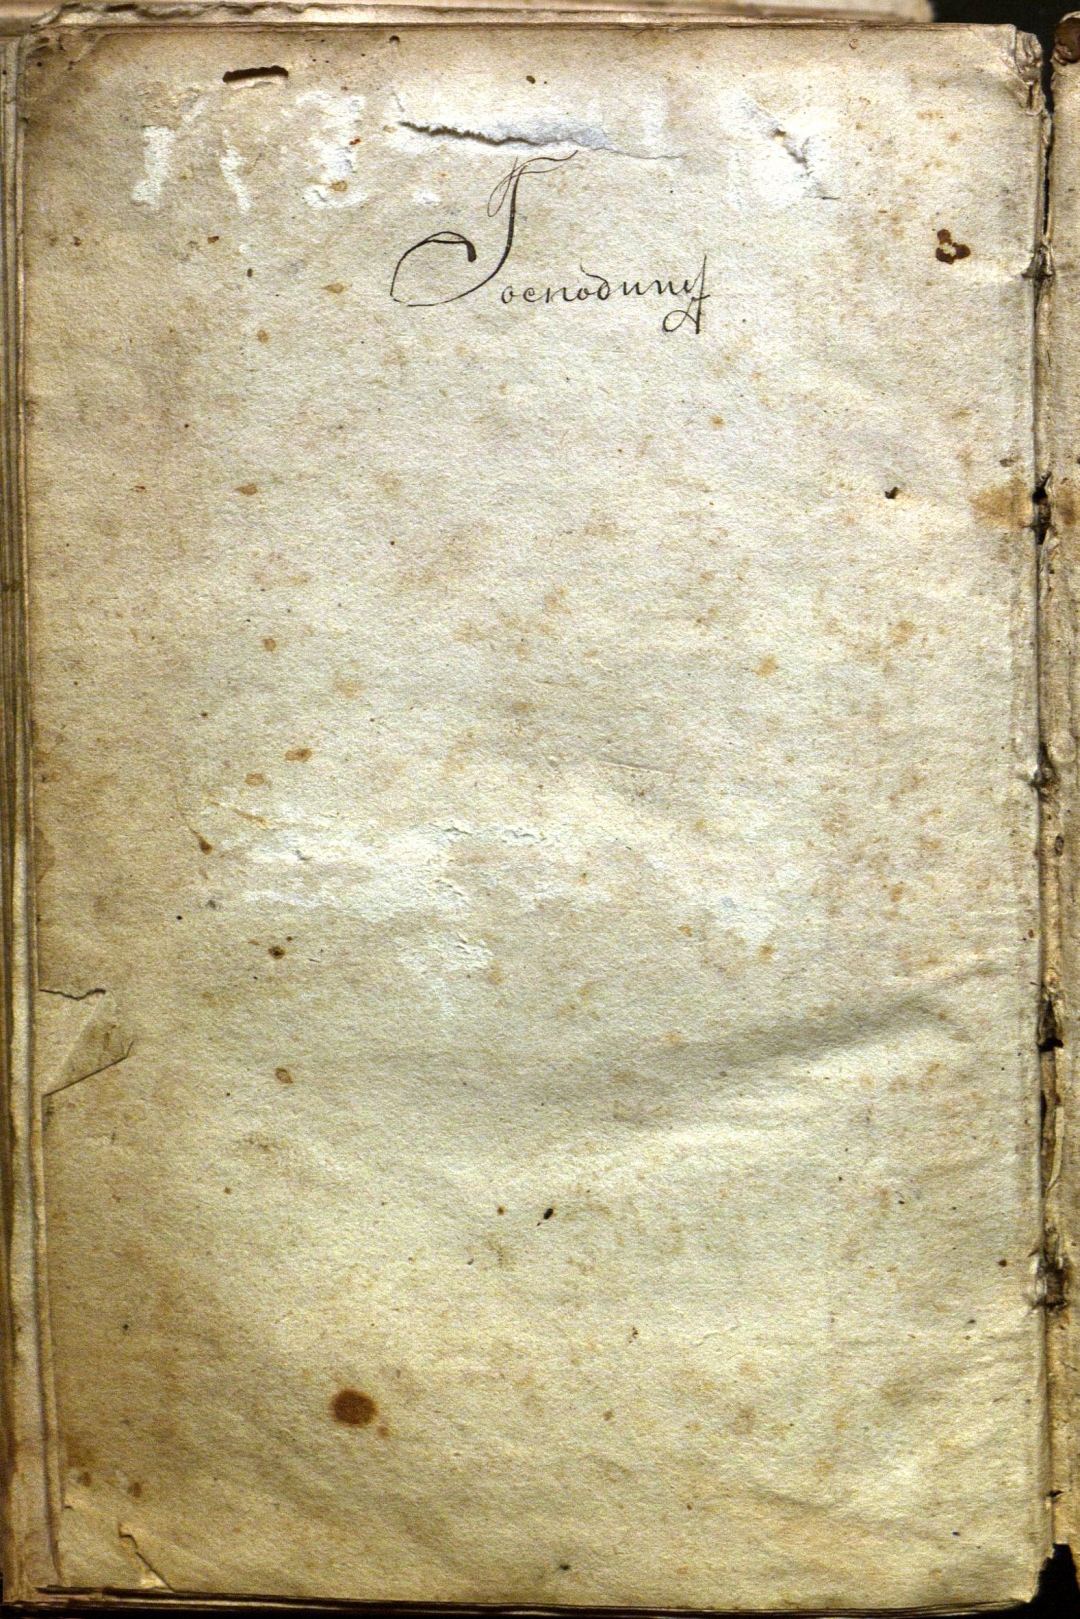 Господину